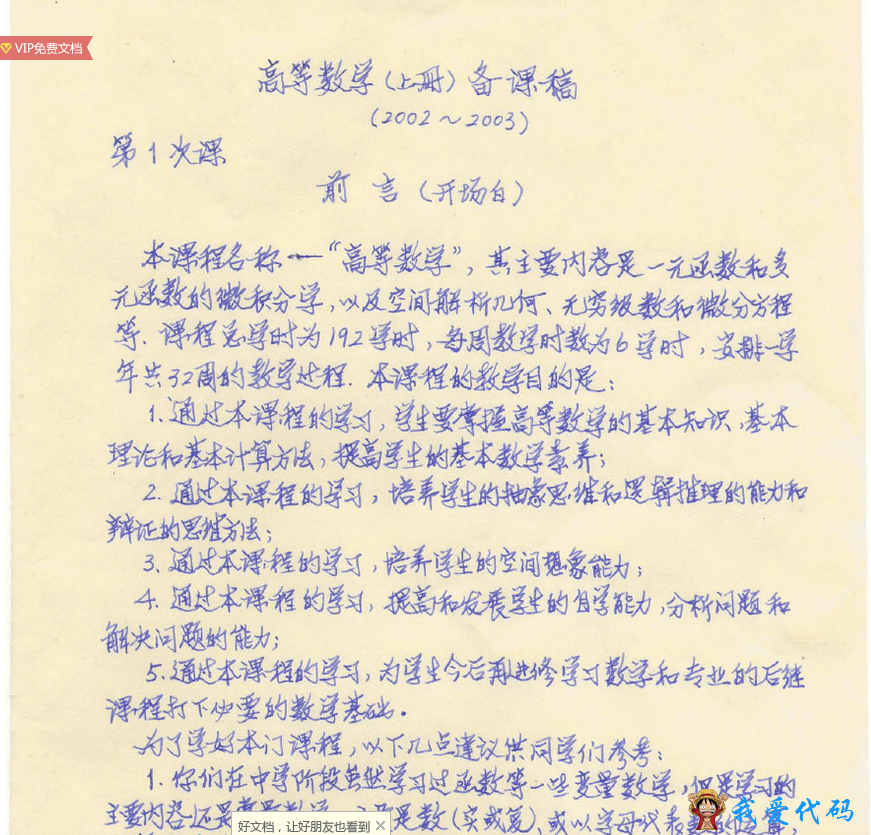 VIP免费文档
高等数学(上册)备课稿
(2002～2003)
第1次课
前 言(开场白)
本课程名称—“高等数学”,其主要内容是一元函数和多
元函数的微积分学,以及空间解析几何、无穷级数和微分方程
等.课程总学时为192学时,每周教学时数为6学时,安排一学
年共32周的教学过程.本课程的教学目的是:
1.通过本课程的学习,学生要掌握高等数学的基本知识、基本
理论和基本计算方法,提高学生的基本数学素养;
2.通过本课程的学习,培养学生的抽象思维和逻辑推理的能力和
辩证的思维方法;
3.通过本课程的学习,培养学生的空间想象能力;
4.通过本课程的学习,提高和发展学生的自学能力,分析问题和
解决问题的能力;
5.通过本课程的学习,为学生今后再进修学习数学和专业的后继
课程打下必要的数学基础.
为了学好本门课程,以下几点建议供同学们参考:
1.你们在中学阶段虽然学习过函数等一些变量数学,但是学习的
主要内容还是常量数学 是数(实或复)、或以字母代表
好文档，让好朋友也看到
我爱代码